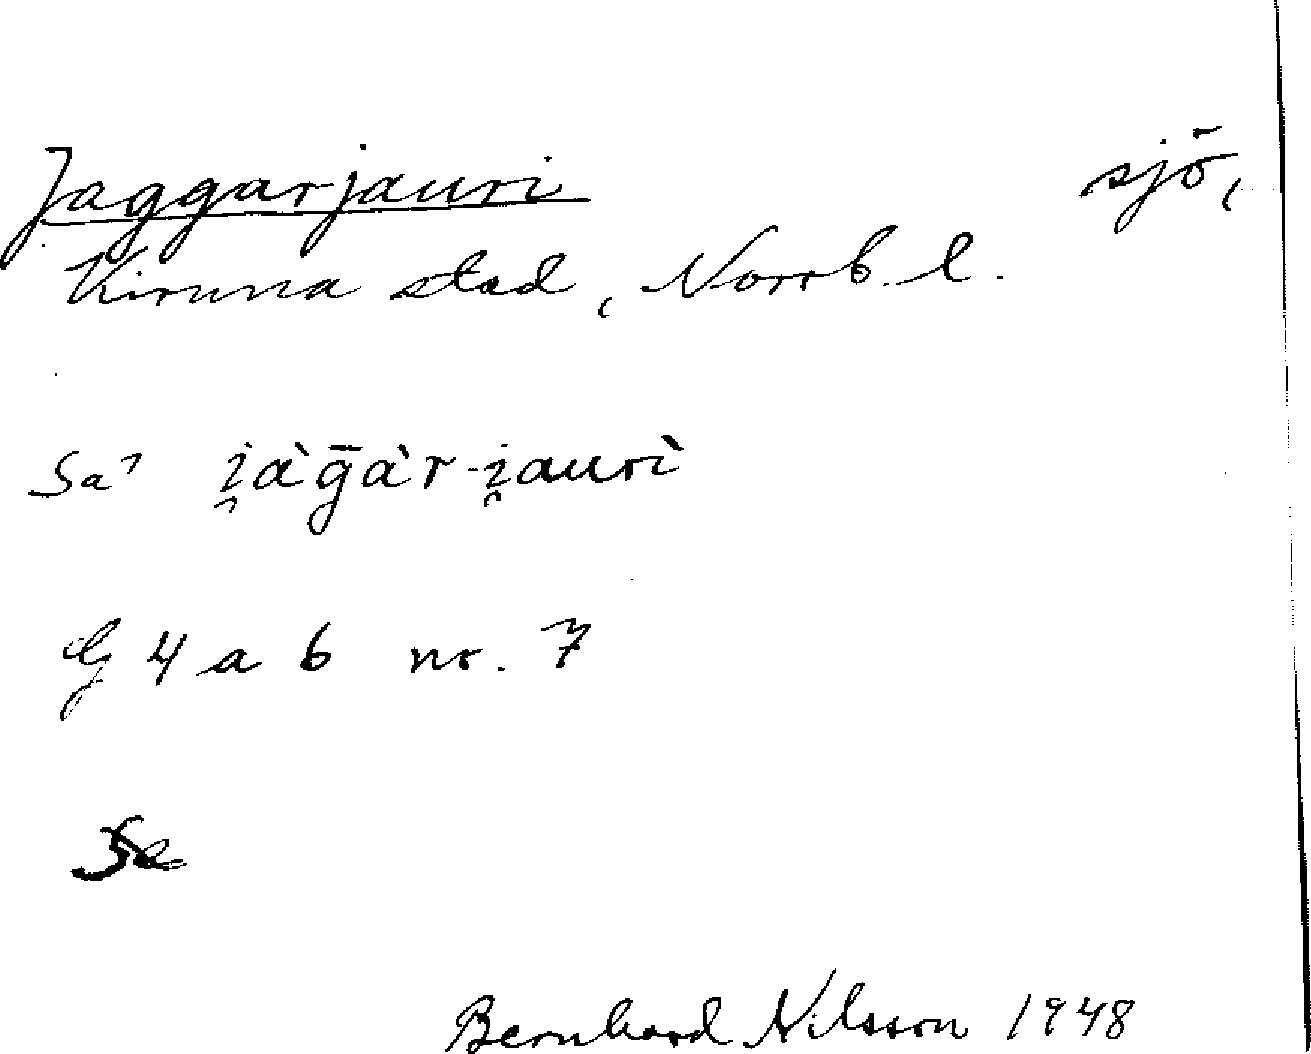 Jaggarjauri sjö,
Kiruna stad, Norrb. l.
Sa⁷ i̯àḡàr-i̯aurì
G 4 a b nr. 7
Se
Bernhard Nilsson 1948